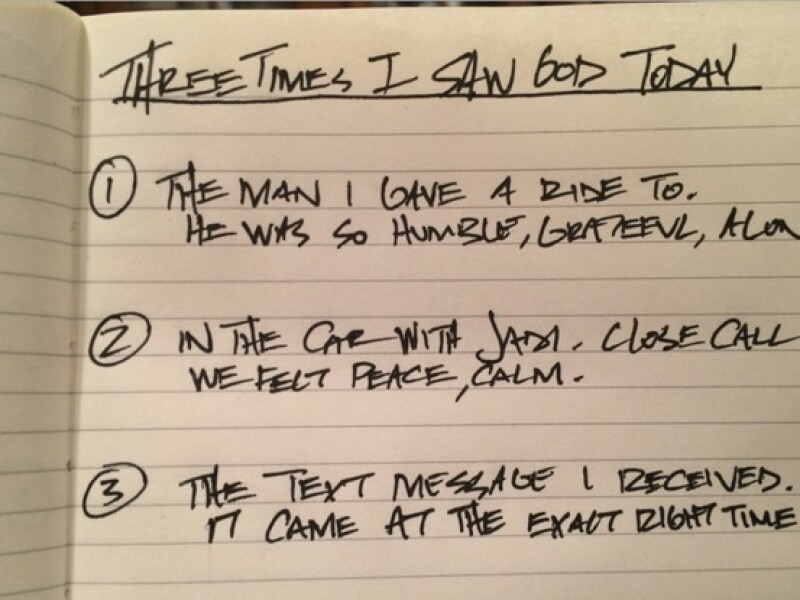 THREE TIMES I SAW GOD TODAY
① THE MAN I GAVE A RIDE TO.
HE WAS SO HUMBLE, GRATEFUL,
② IN THE CAR WITH JADI. CLOSE CALL
WE FELT PEACE, CALM.
③ THE TEXT MESSAGE I RECEIVED.
IT CAME AT THE EXACT RIGHT TIME